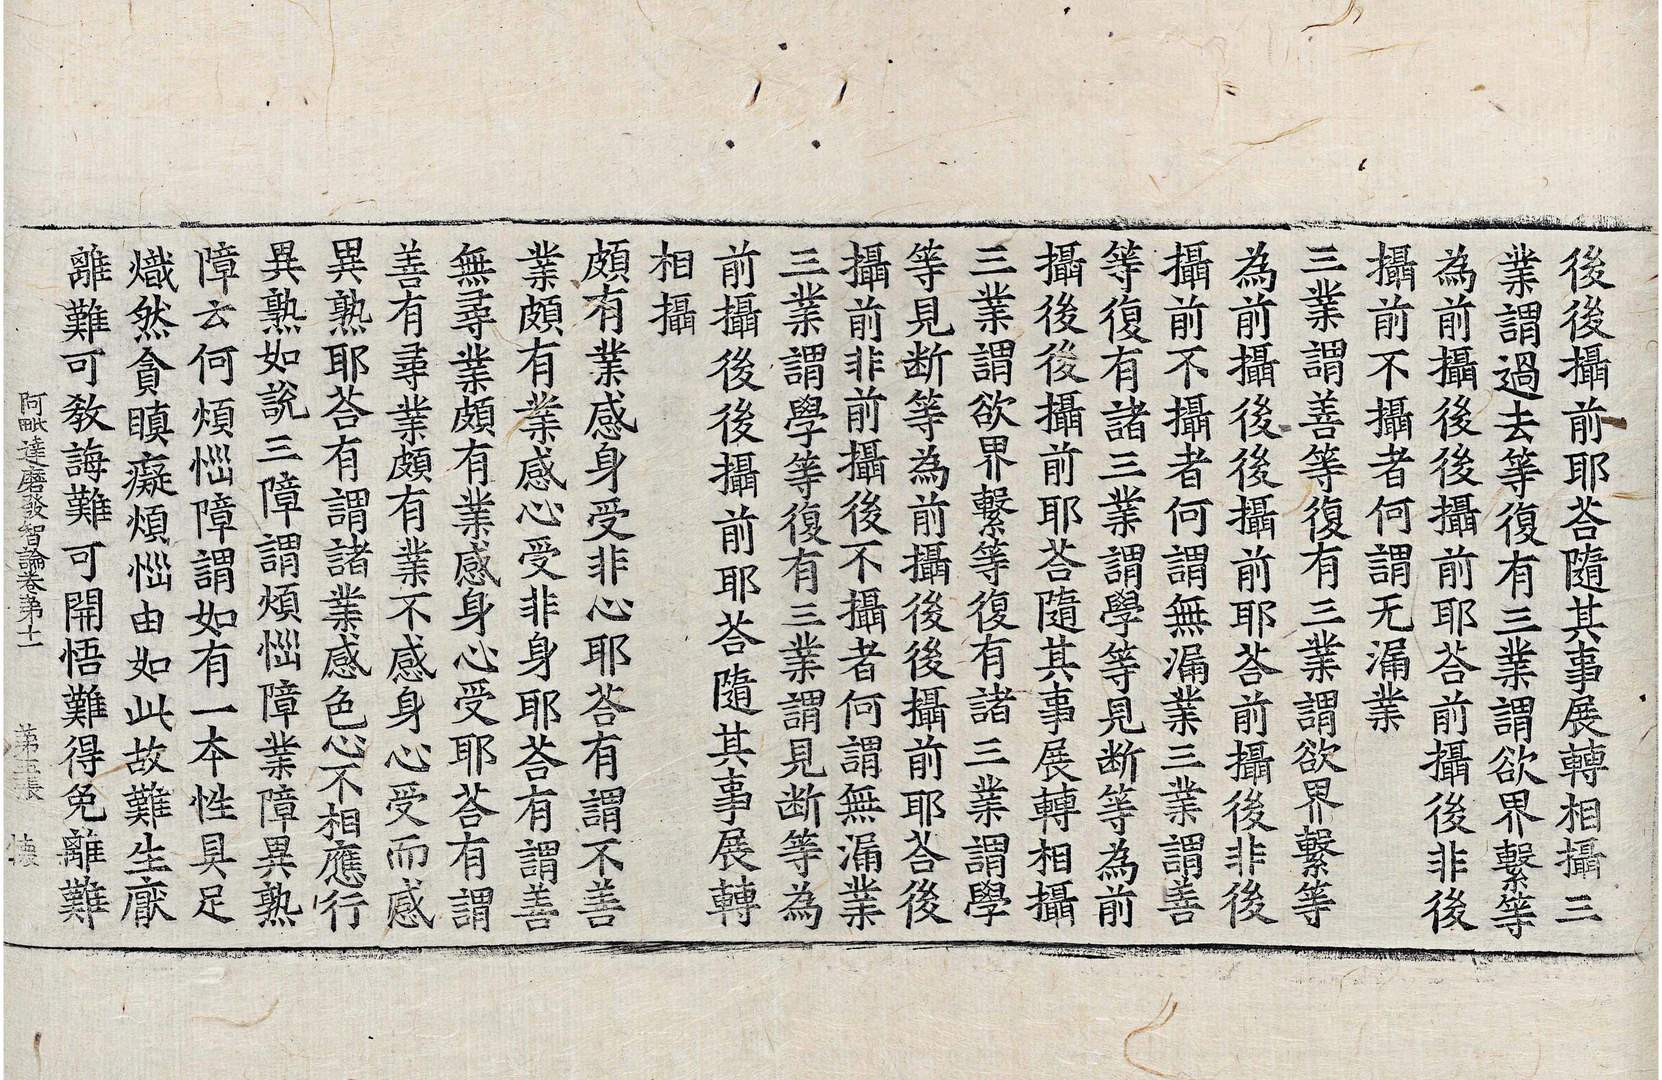 後後攝前耶荅隨其事展轉相攝三
業謂過去等復有三業謂欲界繫等
為前攝後後攝前耶荅前攝後非後
攝前不攝者何謂无漏業
三業謂善等復有三業謂欲界繫等
為前攝後後攝前耶荅前攝後非後
攝前不攝者何謂無漏業三業謂善
等復有諸三業謂學等見断等為前
攝後後攝前耶荅隨其事展轉相攝
三業謂欲界繫等復有諸三業謂學
等見断等為前攝後後攝前耶荅後
攝前非前攝後不攝者何謂無漏業
三業謂學等復有三業謂見断等為
前攝後後攝前耶荅隨其事展轉
相攝
頗有業感身受非心耶荅有謂不善
業頗有業感心受非身耶荅有謂善
無尋業頗有業感身心受耶荅有謂
善有尋業頗有業不感身心受而感
異熟耶荅有謂諸業感色心不相應行
異熟如說三障謂煩惱障業障異熟
障云何煩惱障謂如有一本性具足
熾然貪瞋癡煩惱由如此故難生猒
離難可教誨難可開悟難得免離難
阿毗達磨發智論卷第十一 第三張